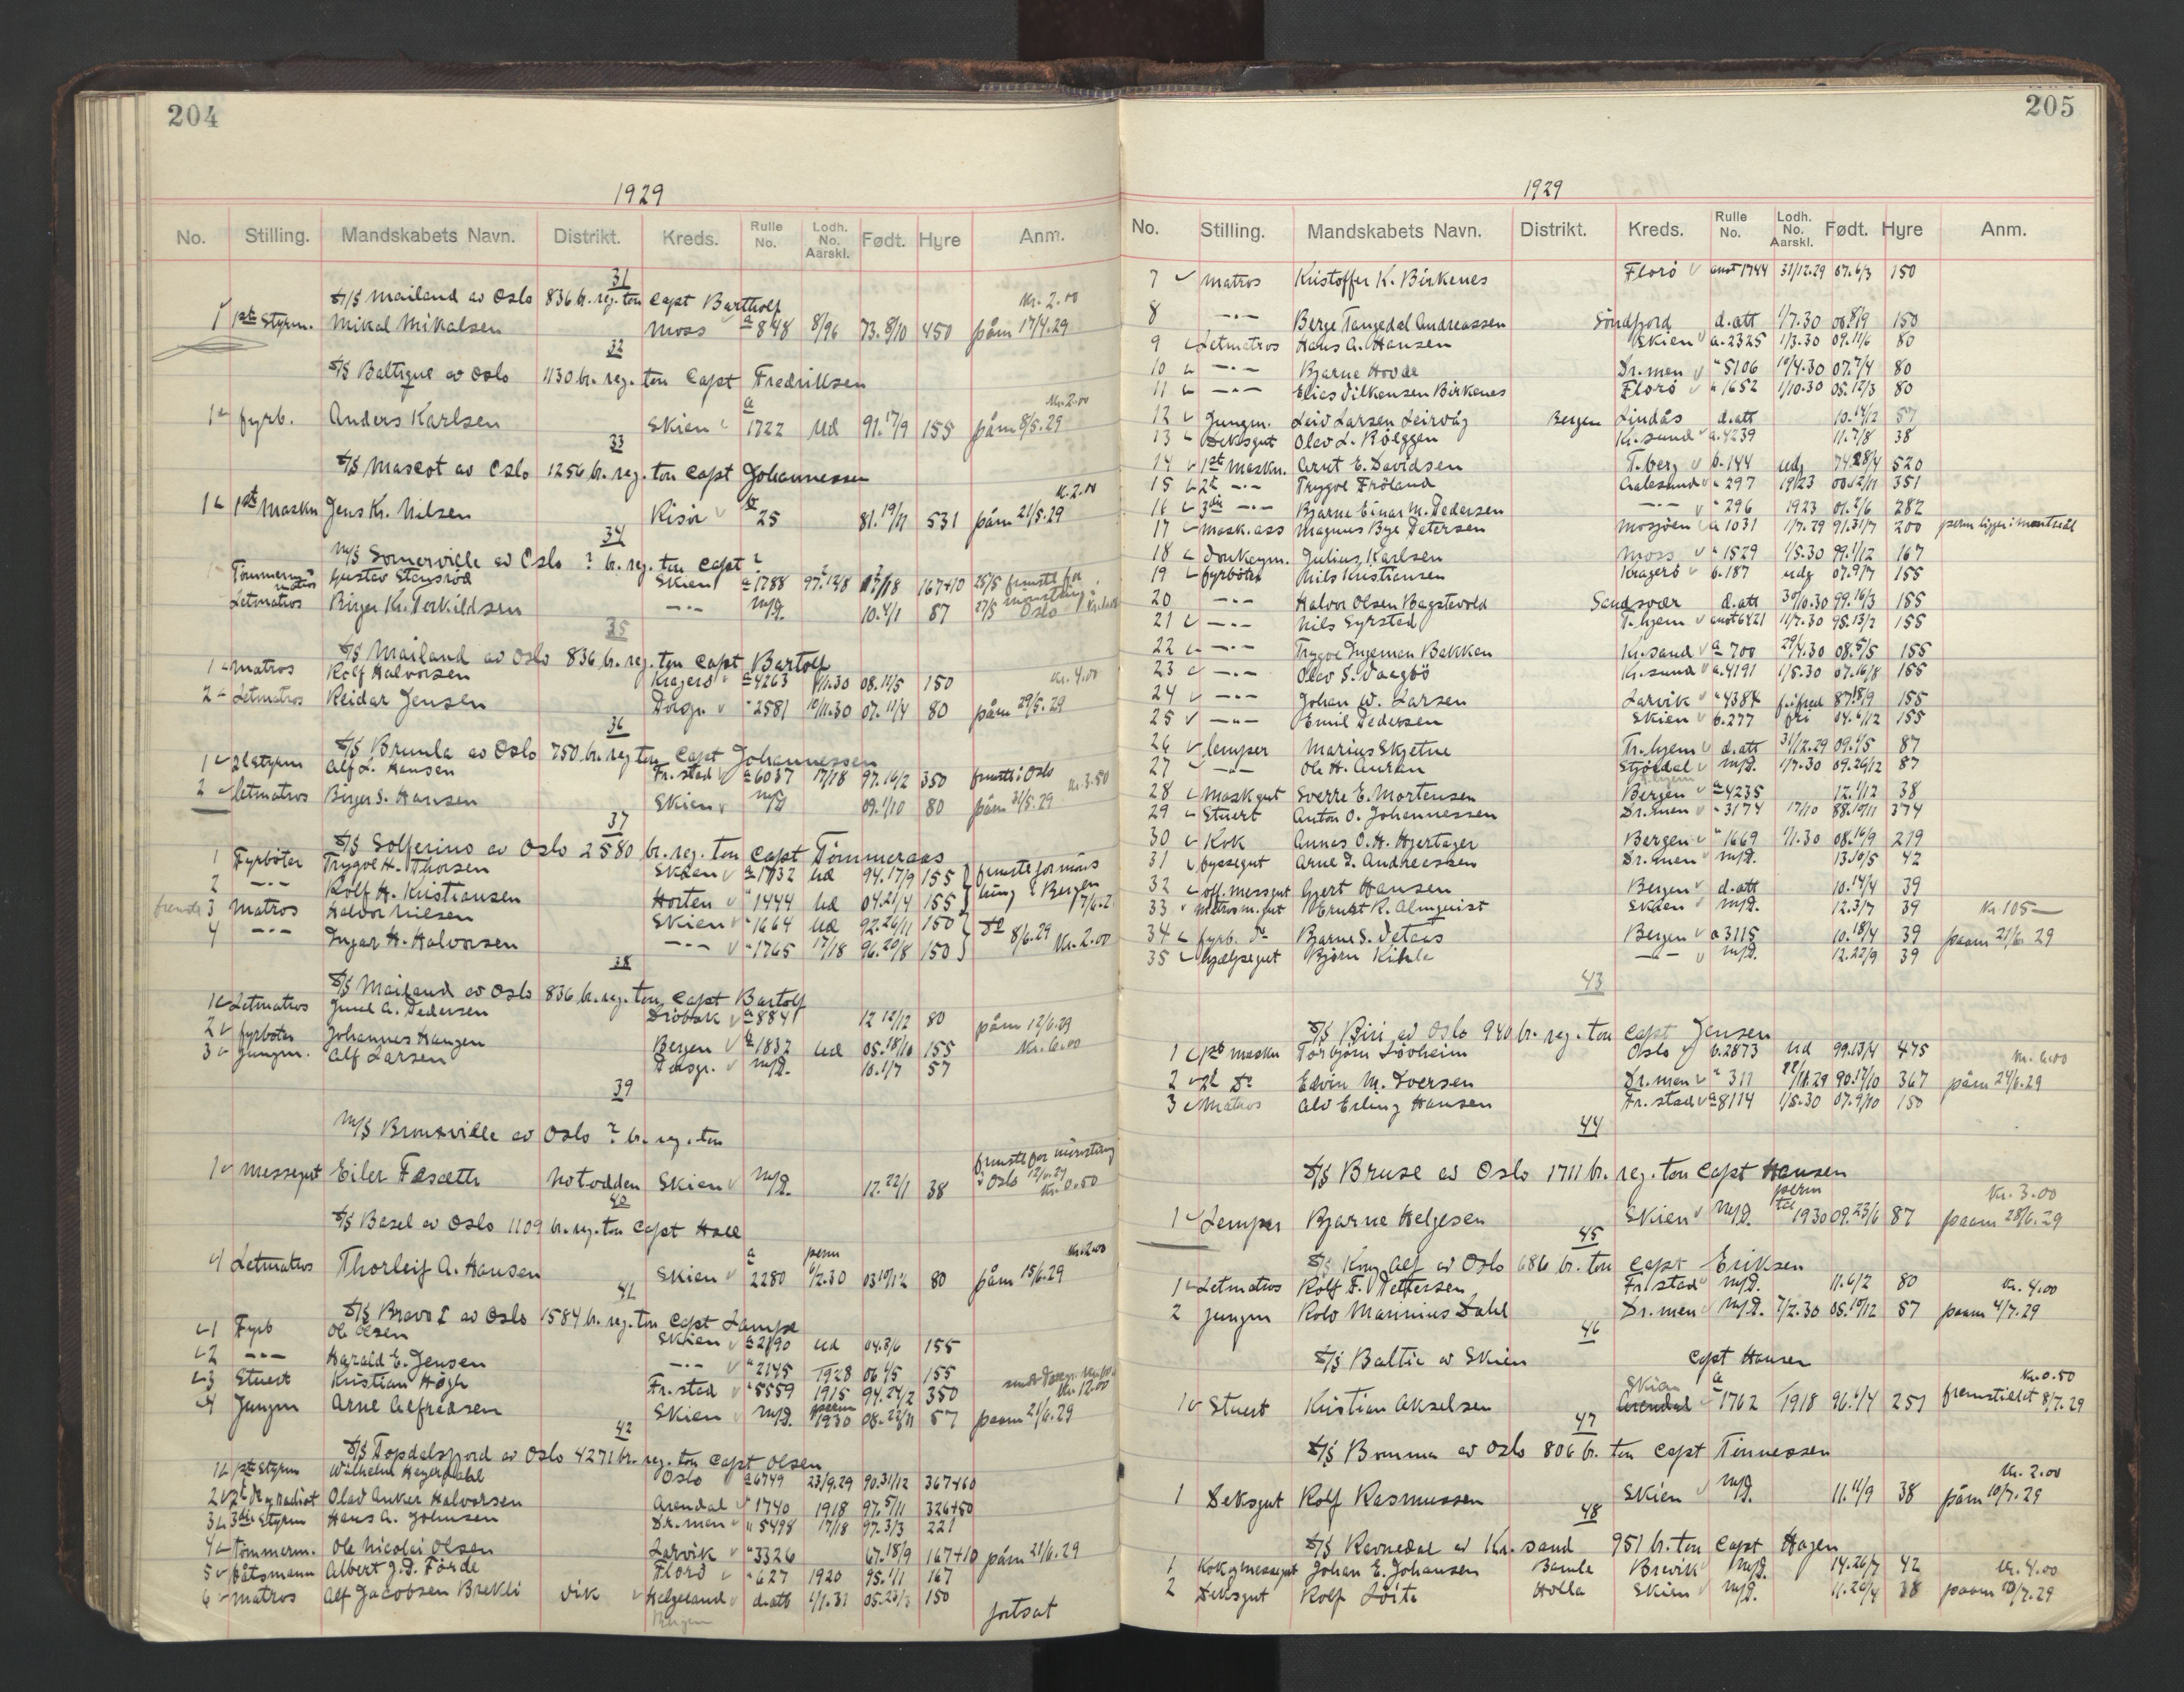 204
1929
No. Stilling. Mandskabets Navn. Distrikt. Kreds. Rulle No. Lodh. No. Aarskl. Født. Hyre Anm.
31
S/S Mailand av Oslo 836 br. reg. ton Capt Bartholf Kr. 2.00
1 1ste Styrm. Mikal Mikalsen Moss a 848 8/96 73. 8/10 450 påm 17/4.29
32
S/S Baltique av Oslo 1130 br. reg. ton Capt Fredriksen
Kr. 2.00
1 fyrb. Anders Karlsen Skien a 1722 Ud 91. 17/9 155 påm 8/5.29
33
S/S Mascot av Oslo 1256 br. reg. ton Capt Johannessen
Kr. 2.00
1 1ste Maskn Jens Kr. Nilsen Risør b 25 81. 19/11 531 påm 21/5.29
34
M/S Somerville av Oslo ? br. reg. ton Capt ?
Tømmerm. matros Gustav Stensrød Skien a 1788 167+10 28/5 fremst for
Letmatros Birger Kr. Terkildsen -"- m/P. 10. 4/1 87 27/5 mønstring i Oslo
35
S/S Mailand av Oslo 836 br. reg. ton Capt Bartolf
1 matros Rolf Halvorsen Kragerø a 4263 1/1.30 08. 11/5 150 Kr. 4.00
2 Letmatros Reidar Jensen Porsgr. " 2581 10/11.30 07. 11/4 80 påm 29/5.29
36
S/S Brumla av Oslo 750 br. reg ton Capt Johannessen
1 2 styrm Alf L. Hansen Fr. stad a 6037 17/18 97. 16/2 350 fremst i Oslo
2 letmatros Birger S. Hansen Skien m/P 09. 1/10 80 påm 31/5.29 Kr. 3.50
37
S/S Solferino av Oslo 2580 br. reg. ton Capt Tømmeraas
1 Fyrbøter Trygve H. Thorsen Skien a 1732 Ud 94. 17/9 155 fremst for møns
2 -"- Rolf H. Kristiansen Horten " 1444 Ud 04. 21/4 155 tring i Bergen 7/6.2
fremst 3 Matros Halvor Nilsen Skien " 1664 Ud 92. 26/11 150
4 -"- Ingar H. Halvorsen -"- " 1765 17/18 96. 20/8 150 do 8/6.29 Kr. 2.00
38
S/S Mailand av Oslo 836 br. reg. ton Capt Bartolf
1 Letmatros Juul A. Pedersen Drøbak a 884 12 12/12 80 påm 12/6.29
2 fyrbøter Johannes Haugen Bergen a 1832 Ud 05. 18/10 155 Kr. 6.00
3 Jungm. Alf Larsen Porsgr. m/P. 10. 1/7 57
39
M/S Bronxville av Oslo ? br. reg. ton
1 Messegut Eiler Fæsæth Notodden Skien m/P. 12. 22/1 38 fremst for mønstring i Oslo 12/6.29 Kr. 0.50
40
S/S Basel av Oslo 1109 br. reg. ton Capt Hall
Kr. 2.00
1 Letmatros Thorleif A. Hansen Skien a 2280 perm 6/2.30 03 10/12 80 påm 15/6.29
41
S/S Bravo I av Oslo 1584 br. reg. ton Capt Lampe
1 Fyrb Ole Olsen Skien a 2190 Ud 04. 3/6 155
2 -"- Harald E. Jensen -"- " 2145 1928 06 4/5 155
3 Stuert Kristian Høgh Fr. stad " 5559 1915 94. 24/2 350 Kr. 12.00
4 Jungm Arne Alfredsen Skien m/P. perm 1930 08. 22/11 57 paam 21/6.29
42
S/S Topdalsfjord av Oslo 4271 br. reg. ton Capt Olsen
1 1ste Styrm Wilhelm Heyerdahl Oslo a 6749 23/9.29 90. 31/12 367+60
2 2. do og radiot Olav Anker Halvorsen Arendal " 1740 1918 97. 5/11 326+50
3 3die Styrm Hans A. Johnsen Dr. men " 5498 17/18 97. 3/3 221
4 Tømmerm. Ole Nicolai Olsen Larvik " 3326 67. 18/9 167+10 påm 21/6.29
5 Båtsmann Albert J. D. Førde Florø " 627 1920 95. 1/1 167
6 matros Alf Jacobsen Brekli Vik Helgeland d.att 1/1.31 05. 23/3 150
Bergen fortsat
205
1929
No. Stilling. Mandskabets Navn. Distrikt. Kreds. Rulle No. Lodh. No. Aarskl. Født. Hyre Anm.
7 matros Kristoffer K. Birkenes Florø anst 1744 31/12.29 07. 6/3 150
8 -"- Berge Tangedal Andreassen Søndfjord d.att 1/7.30 06. 8/9 150
9 Letmatros Hans A. Hansen Skien a. 2325 1/3.30 09. 11/6 80
10 -"- Bjarne Hovde Dr. men " 5106 10/4.30 07. 7/4 80
11 -"- Elias Vilkensen Birkenes Florø " 1652 1/10.30 05. 12/3 80
12 Jungm. Leiv Larsen Leirvåg Bergen Lindås d.att 10. 14/12 57
13 Deksgut Olav L. Rølggen Kr. sund a. 4239 11. 7/8 38
14 1ste Maskn. Arnt E. Davidsen T. berg b. 144 udg 74. 28/4 520
15 2. -"- Trygve Frøland Aalesund " 297 1923 00. 12/11 351
16 3die -"- Bjarne Einar M. Pedersen -"- " 296 1923 01. 2/6 282
17 Mask. ass Magnus Bye Petersen Mosjøen a 1031 1/7.29 91. 31/7 200 perm ligger i Montreal
18 Donkeym. Julius Karlsen Moss " 1529 1/5.30 99. 1/12 167
19 fyrbøter Nils Kristiansen Kragerø b. 187 udg 07. 9/7 155
20 -"- Halvor Olsen Bagstevold Sandsvær d.att 30/10.30 99. 16/3 155
21 -"- Nils Syrstad T. hjem anst 6421 11/7.30 98. 13/2 155
22 -"- Trygve Ingeman Bakken Kr. sand a 700 29/4.30 08. 5/5 155
23 -"- Olav S. Vaagbø Kr. sund a. 4191 1/5.30 07. 16/8 155
24 -"- Johan W. Larsen Larvik " 4384 87. 18/9 155
25 -"- Emil Pedersen Skien b. 277 fri 04. 6/12 155
26 lemper Marius Skjetne Tr. hjem d.att 31/12.29 09. 1/5 87
27 -"- Ole H. Auran Stjørdal m/P. 1/7.30 09. 26/12 87
28 Maskgut Sverre E. Mortensen Bergen a 4235 12. 1/12 38
29 Stuert Anton O. Johannessen Dr. men " 3174 17/10 88. 19/11 374
30 Kok Annas O. H. Hjertager Bergen " 1669 1/1.30 08. 16/9 219
31 byssegut Arne I. Andreassen Dr. men m/P. 13. 10/5 42
32 off. messgut Gjert Hansen Bergen d.att 10. 14/4 39
33 Matros m. gut Ernst R. Almquist Skien m/P. 12. 3/7 39 Kr. 105—
34 fyrb. do Bjarne S. Vetaas Bergen a 3115 10. 18/4 39 paam 21/6 29
35 hjælpegut Bjørn Kihle -"- m/P. 12. 22/9 39
43
S/S Biri av Oslo 940 br. reg. ton Capt Jensen
1 1ste Maskn Torbjørn Løvheim Oslo b. 2873 Ud 99. 13/4 475 Kr. 6.00
2 2. do Edvin M. Iversen Dr. men " 311 90. 17/10 367 påm 24/6.29
3 Matros Alv Erling Hansen Fr. stad a 8114 1/5.30 07. 9/10 150
44
S/S Bruse av Oslo 1711 br. reg. ton Capt Hansen
Kr. 3.00
1 Lemper Bjarne Helgesen Skien m/P. perm til 1930 09. 23/6 87 paam 28/6.29
45
S/S Kong Alf av Oslo 686 br. ton Capt Eriksen
1 Letmatros Rolf F. Pettersen Fr. stad m/P. 11. 6/2 80 Kr. 4.00
2 Jungm Rolv Marinius Dahl Dr. men m/P. 7/2.30 05. 19/12 57 paam 4/7.29
46
S/S Baltic av Skien Capt Hansen
Kr. 0.50
1 Stuert Kristian Akselsen Skien Arendal a 1762 1918 96. 6/4 251 fremstillet 8/7.29
47
S/S Bomma av Oslo 806 br. ton Capt Tinnessen
Kr. 2.00
1 Deksgut Rolf Rasmussen Skien m/P. 11. 11/9 38 påm 10/7.29
48
S/S Ravnedal av Kr. sand 951 br. ton Capt Hagen
1 Kok og messegut Johan E. Johansen Bamle Brevik m/P. 14. 26/7 42 Kr. 4.00
2 Deksgut Rolf Løite Holla Skien m/P. 11. 26/4 38 paam 10/7.29